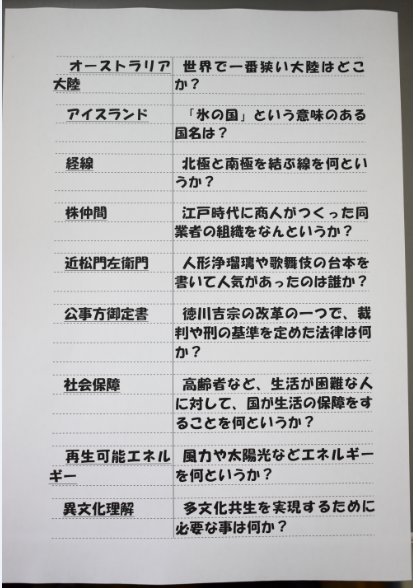 オーストラリア
大陸
世界で一番狭い大陸はどこ
か？
アイスランド
「氷の国」という意味のある
国名は？
経線
北極と南極を結ぶ線を何とい
うか？
株仲間
江戸時代に商人がつくった同
業者の組織をなんというか？
近松門左衛門
人形浄瑠璃や歌舞伎の台本を
書いて人気があったのは誰か？
公事方御定書
徳川吉宗の改革の一つで、裁
判や刑の基準を定めた法律は何
か？
社会保障
高齢者など、生活が困難な人
に対して、国が生活の保障をす
ることを何というか？
再生可能エネル
ギー
風力や太陽光などエネルギー
を何というか？
異文化理解
多文化共生を実現するために
必要な事は何か？